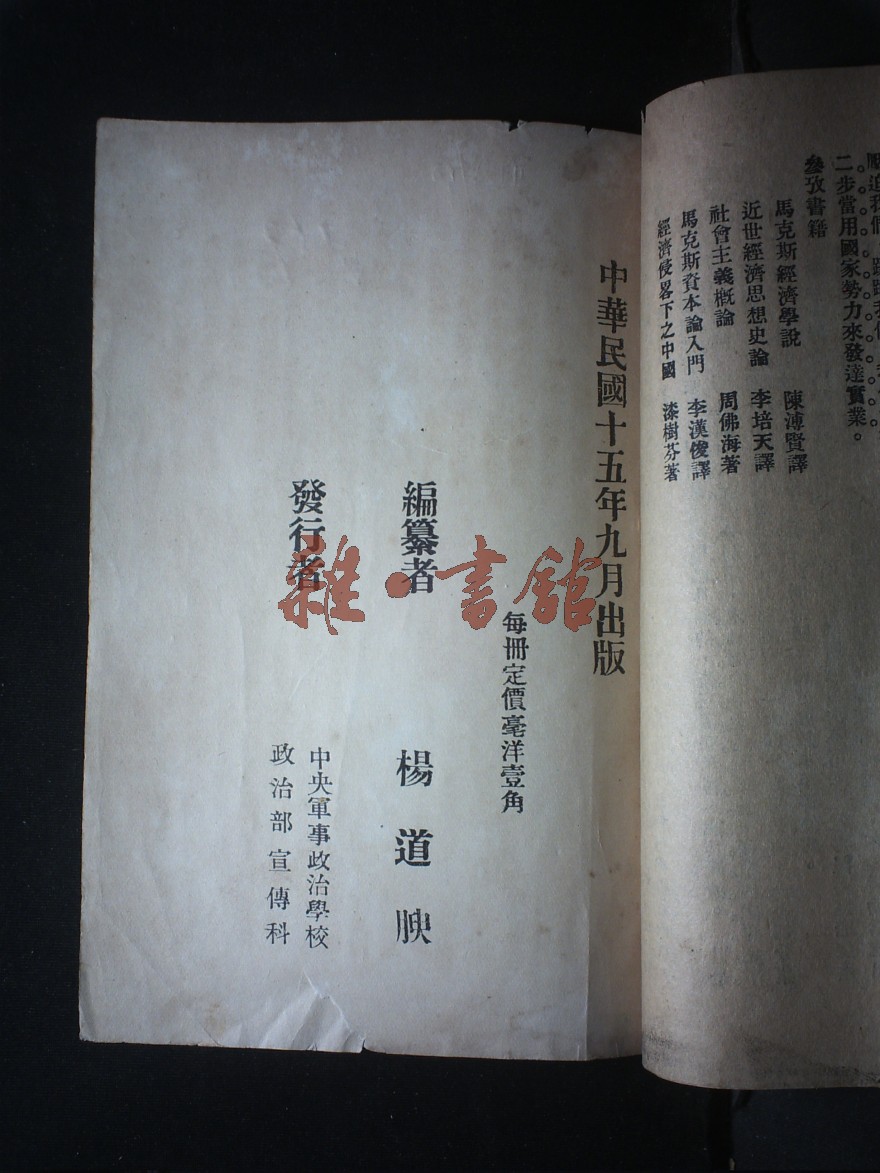 二步當用國家勢力來發達實業。
參攷書籍
馬克斯經濟學說 陳溥賢譯
近世經濟思想史論 李培天譯
社會主義概論 周佛海著
馬克斯資本論入門 李漢俊譯
經濟侵畧下之中國 漆樹芬著
中華民國十五年九月出版
每冊定價毫洋壹角
編纂者 楊道腴
發行者 中央軍事政治學校
政治部宣傳科
雜·書館